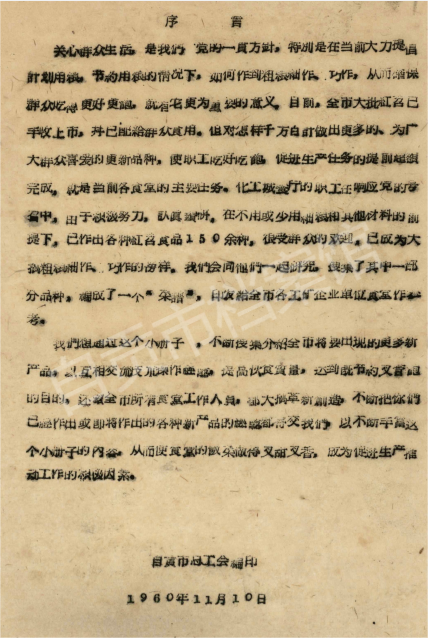 序言
关心群众生活，是我们党的一贯方針，特别是在当前大力提倡
計划用粮，节約用粮的情况下，如何作到粗粮細作、巧作，从而保
群众吃得更好更飽，就有它更为重要的意义。目前，全市大批紅苕已
丰收上市，并已配給群众食用。但对怎样千方百計做出更多的、为广
大群众喜爱的更新品种，使职工吃好吃飽，促进生产任务的提前超額
完成，就是当前各食堂的主要任务。化工 餐厅的职工在响应党的号
召中，由于积极努力，认真 研，在不用或少用 和其他材料的前
提下，已作出各种紅苕食品150余种，很受群众的欢迎，已成为大
搞粗粮細作、巧作的榜样。我們会同他們一起研究，搜集了其中一部
分品种，編成了一个“菜譜”，印发給全市各工矿企业单位食堂作参
考。
我們想通过这个小册子，不断搜集介紹全市将要出現的更多新
产品，以互相交流发 操作經驗，提高伙食质量，达到既节約又吃飽
的目的。还 全市所有食堂工作人員，都大搞革新創造，不断把你們
已經作出或即将作出的各种新产品的經驗都寄交我們，以不断丰富这
个小册子的内容。从而使食堂的飯菜做得又 又 ，成为促进生产推
动工作的积极因素。
自貢市总工会編印
1960年11月10日